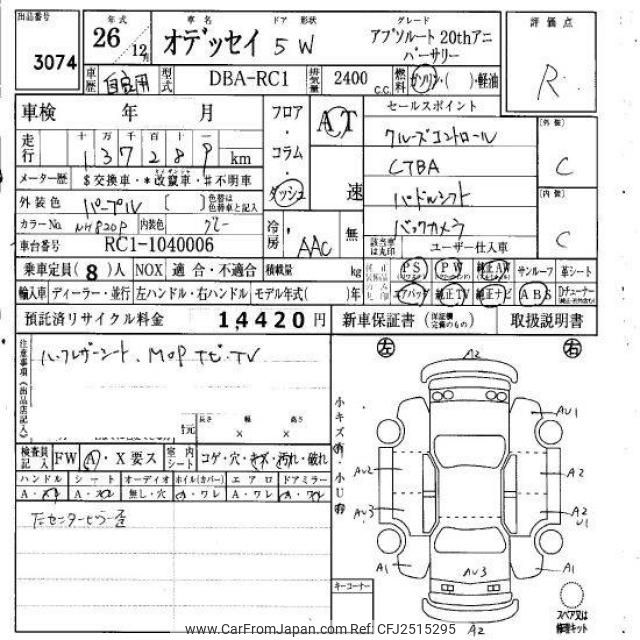 出品番号
3074
年式 車名 ドア 形状 グレード
26 12月 オデッセイ 5W アブソルート 20thアニバーサリー
評価点
R
車歴 自家用 型式 DBA-RC1 排気量 2400 c.c. 燃料 ガソリン・( )・軽油
車検 年 月
フロア・コラム・ダッシュ
AT
速
セールスポイント
クルーズコントロール
CTBA
パドルシフト
バックカメラ
外装 C
内装 C
走行 十 万 千 百 十 一
137289 km
メーター歴 $交換車・*改竄車・#不明車
外装色 パープル [ ] 色替は色替棟車と記入
カラーNo. NH820P 内装色 グレー
冷房 AAC 無
該当車は丸印 ユーザー仕入車
車台番号 RC1-1040006
乗車定員(8)人 NOX 適合・不適合 積載量 kg
PS PW 純正AW サンルーフ 革シート
輸入車 ディーラー・並行 左ハンドル・右ハンドル モデル年式( )年
エアバッグ 純正TV 純正ナビ ABS Dチューナー
預託済リサイクル料金 14420円 新車保証書 (保証書完備のもの) 取扱説明書
注意事項(出品店記入)
ハーフレザーシート、MOPナビ・TV
長さ 幅 高さ
× ×
検査員記入 FW A・X要ス 室内シート コゲ・穴・キズ・汚れ・破れ
ハンドル シート オーディオ ホイル(カバー) エアロ ドアミラー
A・ス A・ス 無し・穴 A・ワレ A・ワレ A・ワレ
左センターピラー歪
小キズ有・小U有
左 右
A2
AU1
AU2
A2
AU3
A2
U1
A1
AU3
A1
A2
キーコーナー
スペア又は修理キット
www.CarFromJapan.com Ref: CFJ2515295